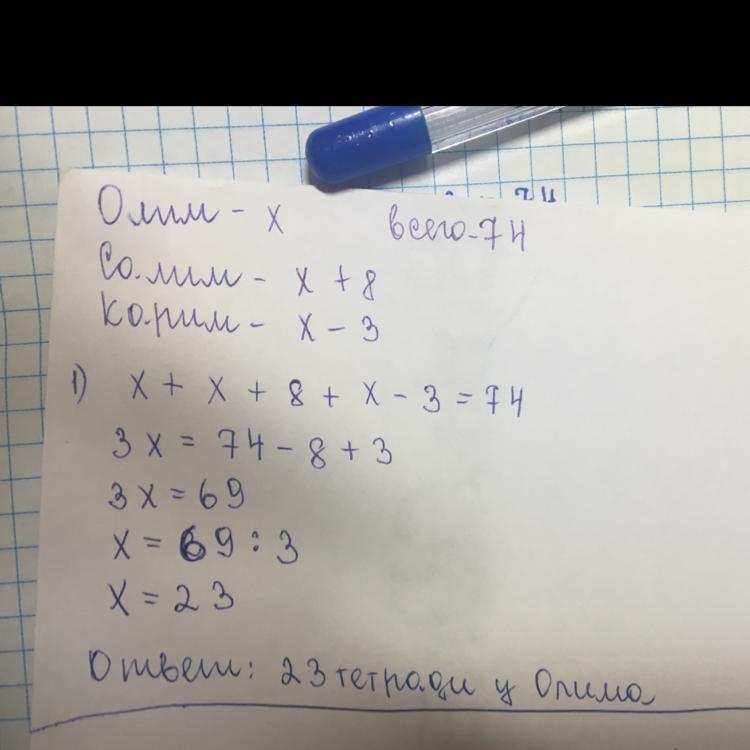 Олим - х всего-74
Салим - х + 8
Карим - х - 3
1) х + х + 8 + х - 3 = 74
3х = 74 - 8 + 3
3х = 69
х = 69 : 3
х = 23
Ответ: 23 тетради у Олима